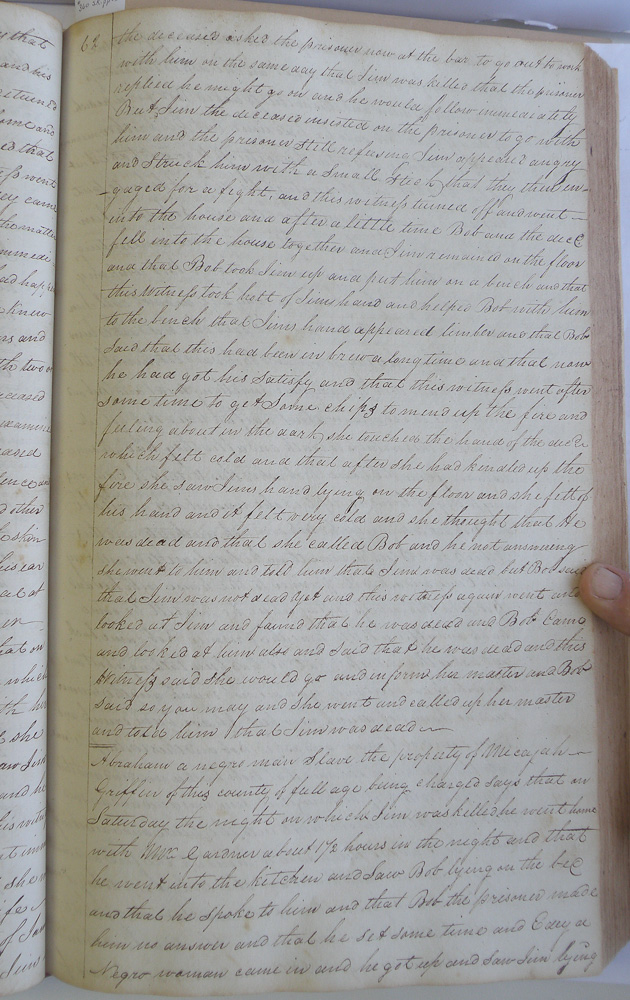 62
the deceased asked the prisoner now at the bar to go out to work
with him on the same day that Jim was killed that the prisoner
replied he might go on and he would follow immediately
But Jim the deceased insisted on the prisoner to go with
him and the prisoner still refusing Jim appeared angry
and Struck him with a Small Stick, that they then en-
gaged for a fight, and this witness turned off and went
into the house and after a little time Bob and the decd
fell into the house together and Jim remained on the floor
and that Bob took Jim up and put him on a bench and that
this witness took holt of Jims hand and helped Bob with him
to the bench that Jims hand appeared limber and that Bob
Said that this had been in brew a long time and that now
he had got his Satisfy and that this witness went after
some time to get Some chips to mend up the fire and
feeling about in the dark, she touched the hand of the decd
which felt cold and that after she had kindled up the
fire she saw Jims hand lying on the floor and she felt of
his hand and it felt very cold and she thought that He
was dead and that she called Bob and he not answering
she went to him and told him that Jim was dead but Bob said
that Jim was not dead yet and this witness again went and
looked at Jim and found that he was dead and Bob Came
and looked at him also and Said that he was dead and this
Witness said she would go and inform her master and Bob
Said so you may and she went and called up her master
and told him that Jim was dead
Abraham a negro man Slave the property of Micajah
Griffin of this county of full age being charged says that on
Saturday the night on which Jim was killed he went home
with Mr. Gardner about 1½ hours in the night and that
he went into the kitchen and Saw Bob lying on the bed
and that he spoke to him and that Bob the prisoner made
him no answer and that he set some time and Edey a
Negro woman came in and he got up and saw Jim lying